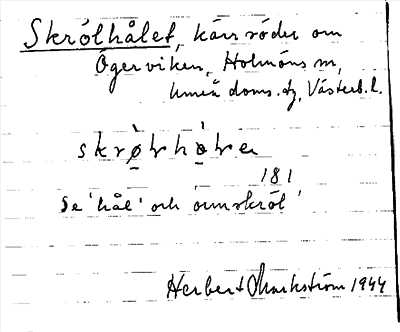 Skrölhålet, kärr söder om
Ögerviken, Holmöns sn,
Umeå doms.tg, Västerb.l.
181
Se 'hål' och
Herbert Markström 1944